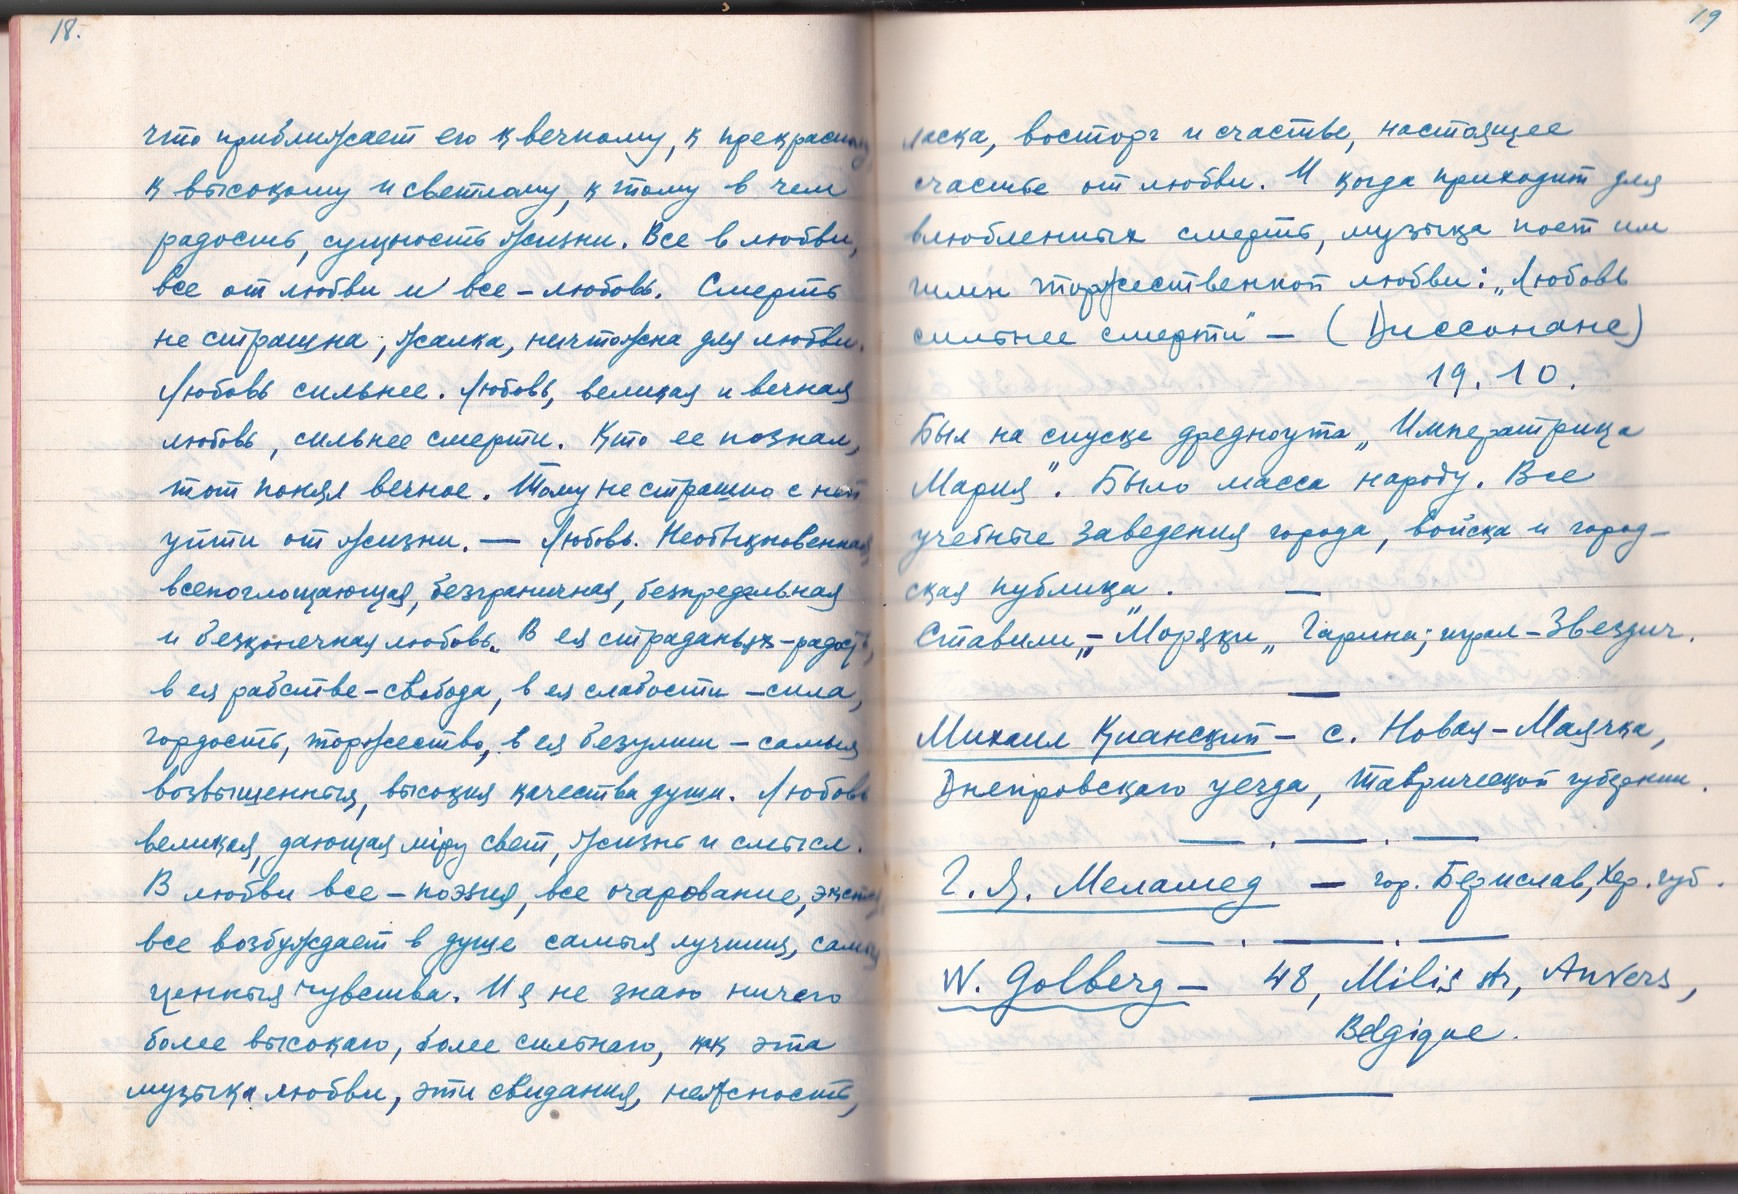 18.
что приближает его к вечному, к прекрасному,
к высокому и светлому, к тому в чем
радость, сущность жизни. Все в любви,
все от любви и все – любовь. Смерть
не страшна, жалка, ничтожна для любви.
Любовь сильнее. Любовь, великая и вечная
любовь, сильнее смерти. Кто ее познал,
тот понял вечное. Тому не страшно с ней
уйти от жизни. — Любовь. Необыкновенная
всепоглощающая, безграничная, безпредельная
и безконечная любовь. В ея страданьях – радость,
в ея рабстве – свобода, в ея слабости – сила,
гордость, торжество, в ея безумии – самыя
возвышенныя, высокия качества души. Любовь
великая, дающая міру свет, жизнь и смысл.
В любви все – поэзия, все очарование, экстаз,
все возбуждает в душе самыя лучшия, самыя
ценныя чувства. И я не знаю ничего
более высокаго, более сильнаго, как эта
музыка любви, эти свидания, нежность,
19
ласка, восторг и счастье, настоящее
счастье от любви. И когда приходит для
влюбленных смерть, музыка поет им
гимн торжественной любви: „Любовь
сильнее смерти" — (Диссонанс)
19. 10.
Был на спуске дредноута „Императрица
Мария". Было масса народу. Все
учебные заведения города, войска и город-
ская публика. —
Ставили – „Моряки„ Гарина; играл – Звездич.
Михаил Кианский – с. Новая – Маячка,
Днепровскаго уезда, Таврической губернии.
Г. Я. Меламед — гор. Берислав, Хер. губ.
W. Golberg – 48, Milis str, Anvers,
Belgique.